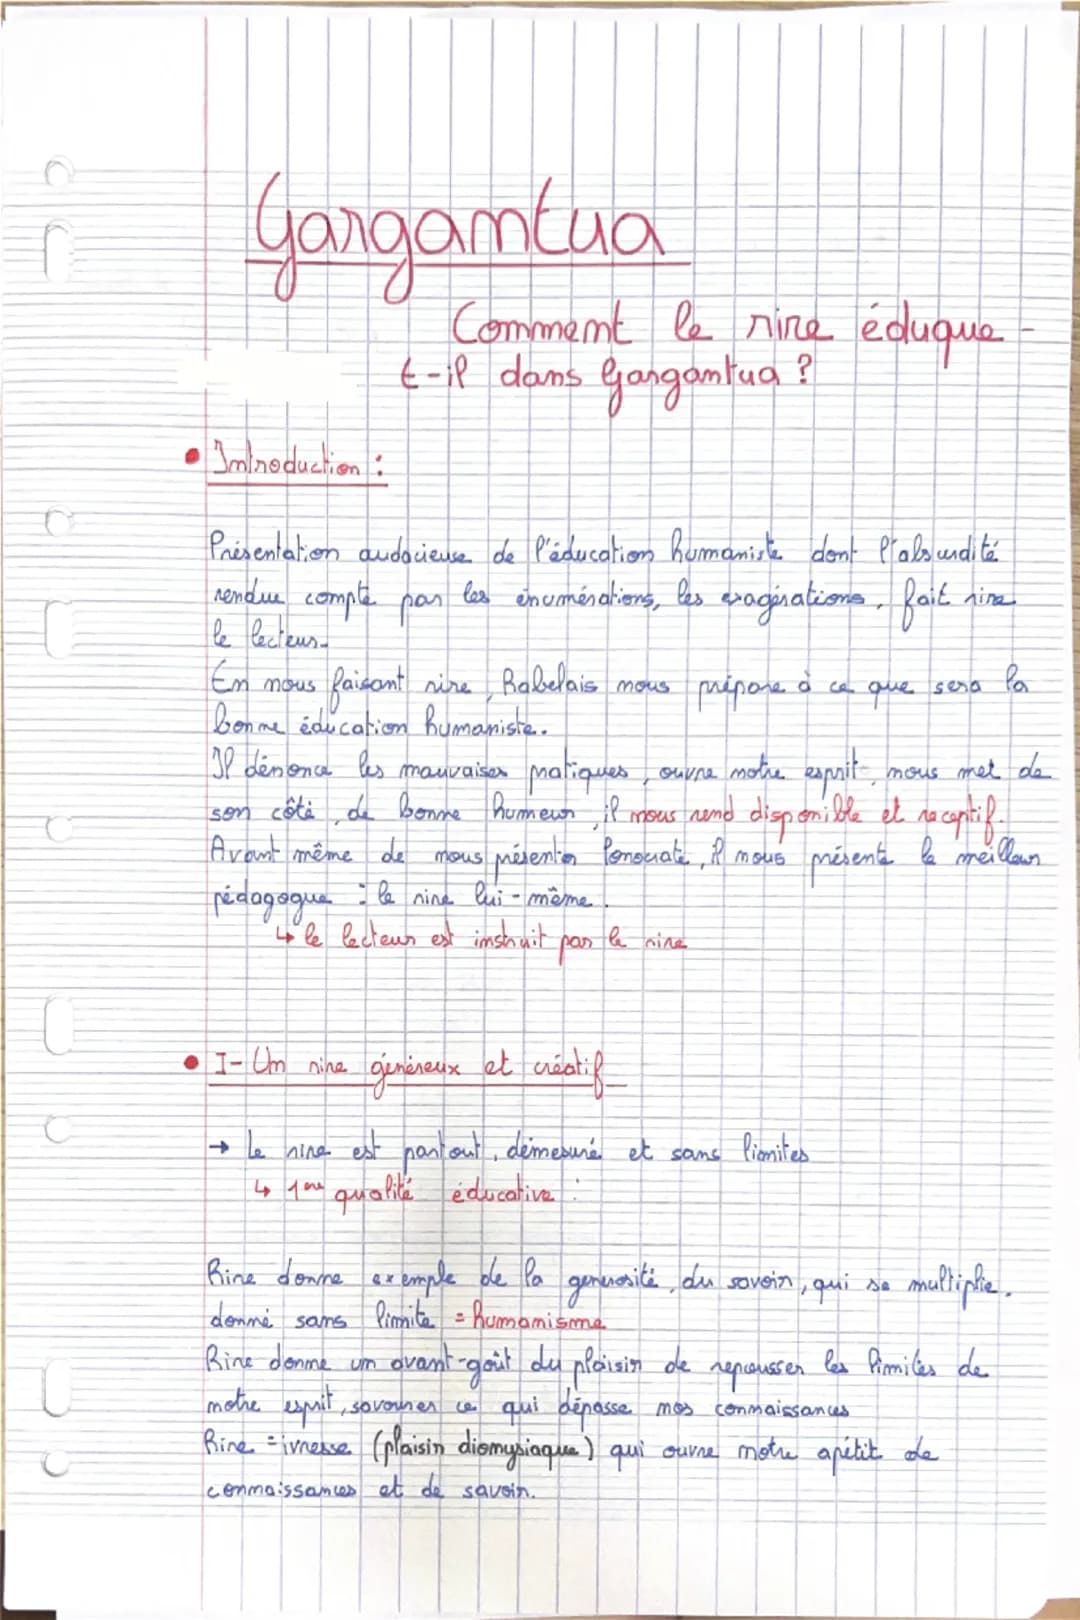 Gargantua
Comment le rire éduque-
t-il dans Gargantua ?
• Introduction :
Présentation audacieuse de l'éducation humaniste dont l'absurdité
rendue compte par les énumérations, les exagérations, fait rire
le lecteur.
En nous faisant rire, Rabelais nous prépare à ce que sera la
bonne éducation humaniste.
Il dénonce les mauvaises pratiques, ouvre notre esprit, nous met de
son côté, de bonne humeur, il nous rend disponible et receptif.
Avant même de nous présenter Ponocrate, il nous présente le meilleur
pédagogue : le rire lui-même.
↳ le lecteur est instruit par le rire
• I- Un rire généreux et créatif
→ Le rire est partout, démesuré et sans limites
↳ 1ère qualité éducative :
Rire donne exemple de la generosité, du savoir, qui se multiplie,
donné sans limite = humanisme
Rire donne un avant-goût du plaisir de repousser les limites de
notre esprit, savourer ce qui dépasse nos connaissances
Rire = ivresse (plaisir dionysiaque) qui ouvre notre apétit de
connaissances et de savoir.